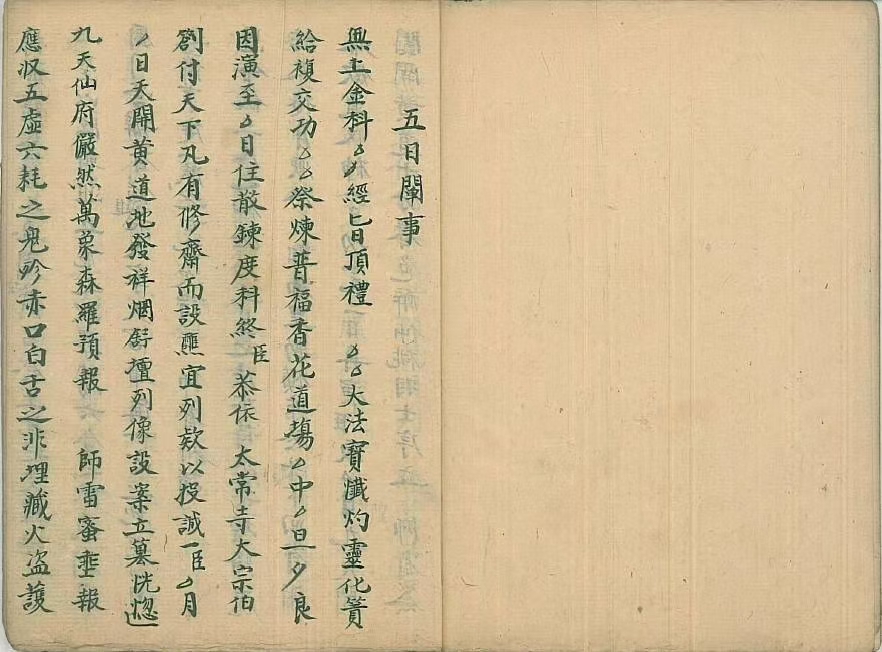 五日闡事
無上金科ㄥㄥ經旨頂禮 ㄥㄥ大法寶懺灼靈化簀
給複交功ㄥㄥ祭煉普福香花道場ㄥ中ㄥ旦夕良
因演至ㄥ日住散鍊度科終臣恭依 太常寺大宗伯
劄付天下凡有修齋而設醮宜列欵以投誠一臣ㄥ月
ㄥ日天開黄道地發祥烟舒壇列像設案立墓恍惚
九天仙府儼然萬象森羅預報 師雷蜜 報
應収五虛六耗之鬼殄赤口白舌之非埋藏火盗護